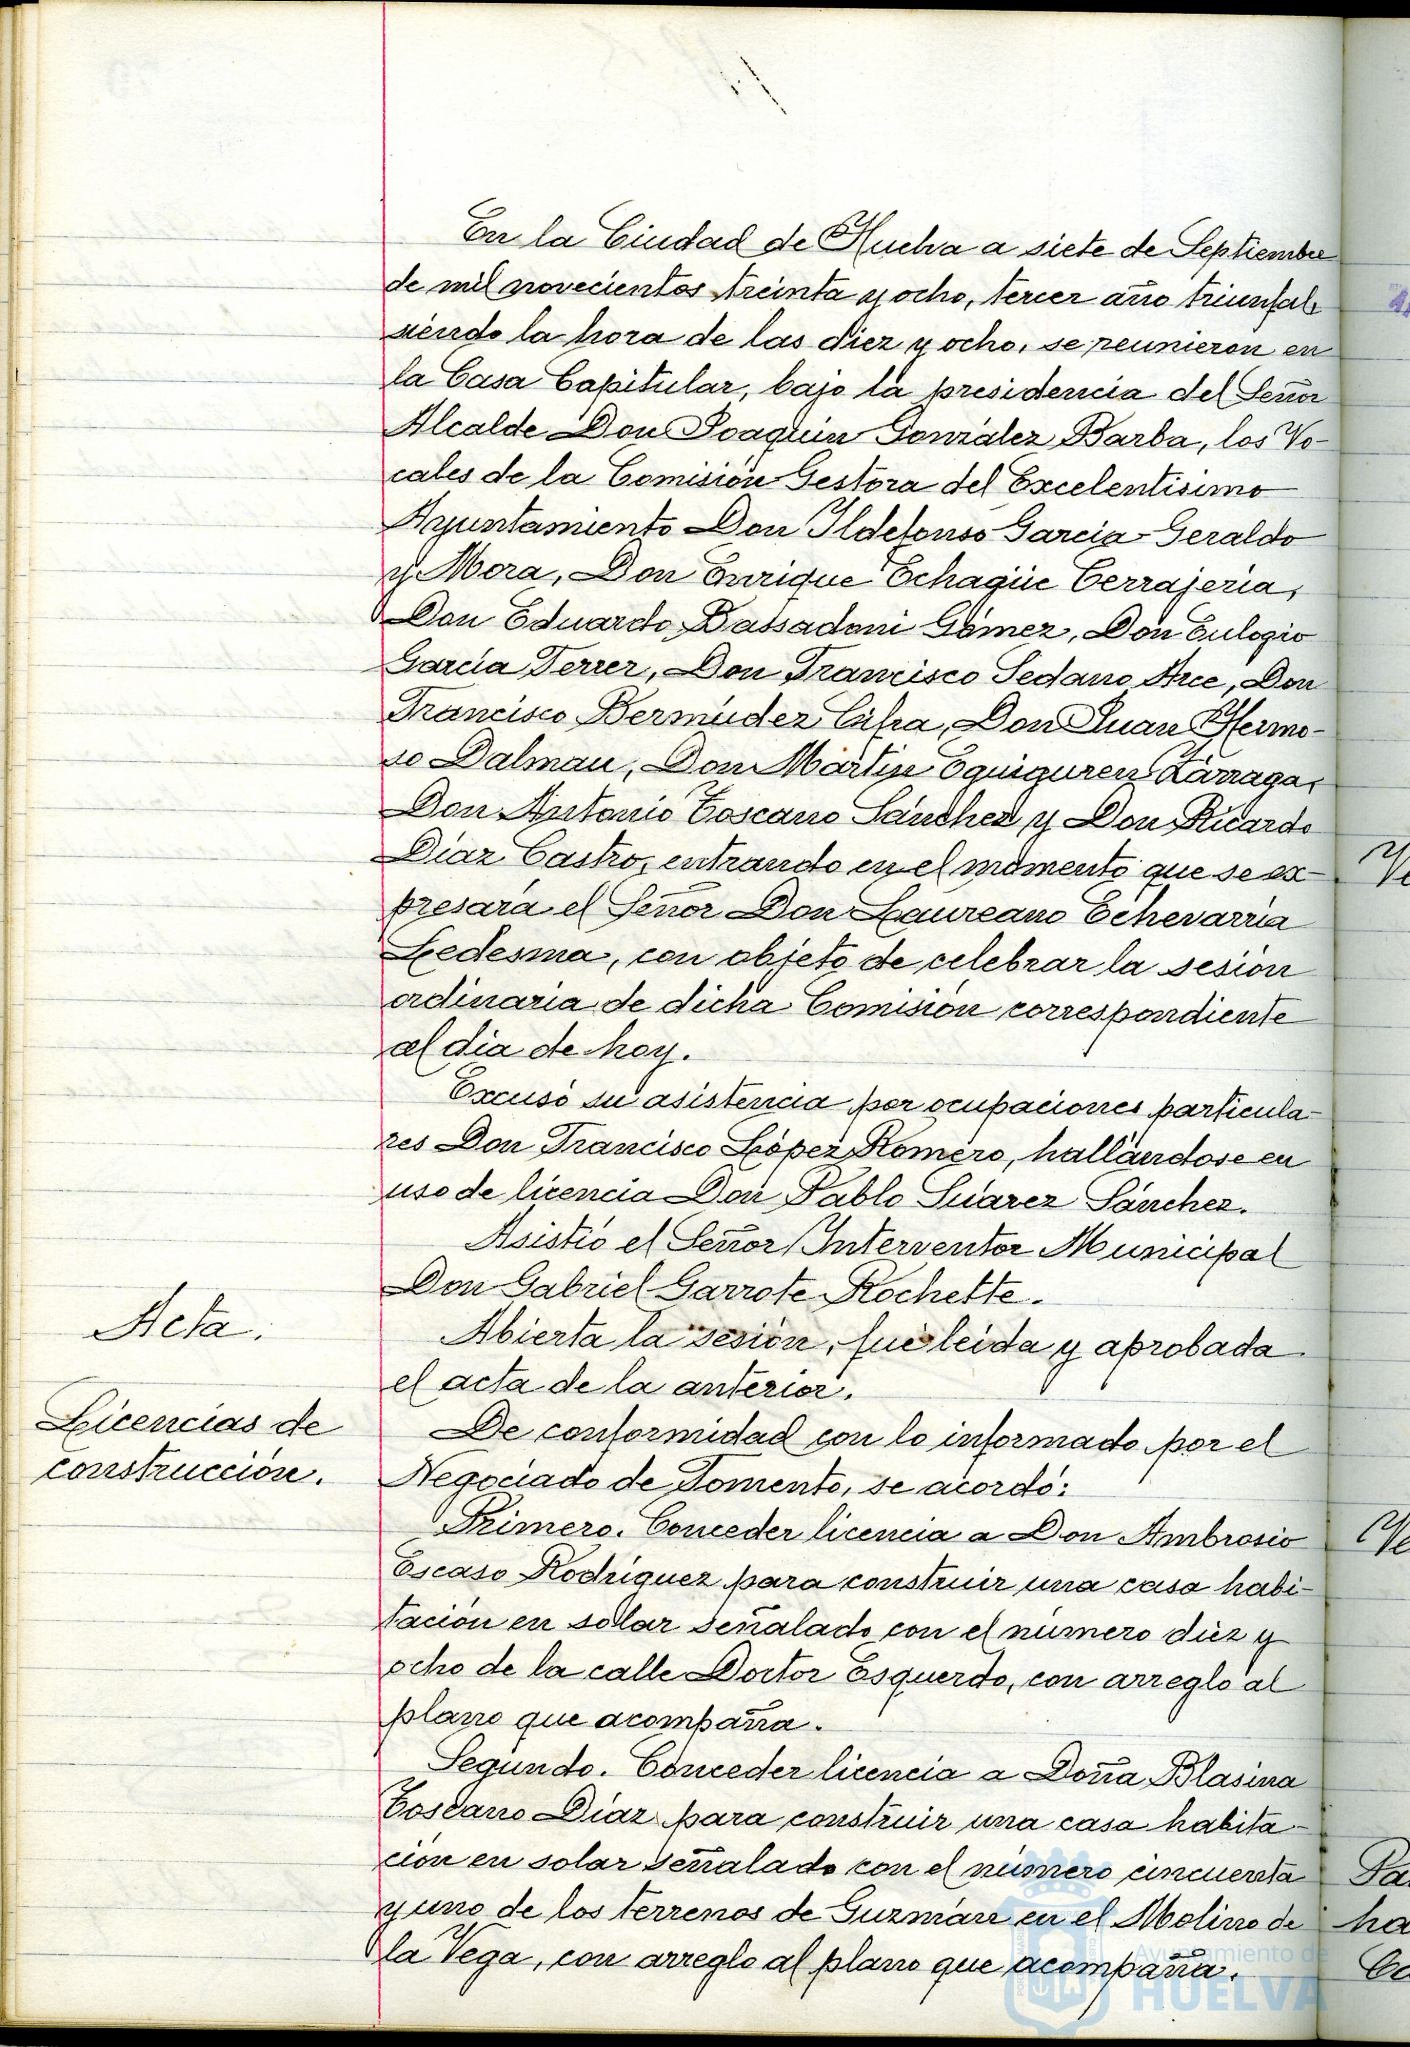 En la Ciudad de Huelva a siete de Septiembre
de mil novecientos treinta y ocho, tercer año triunfal,
siendo la hora de las diez y ocho, se reunieron en
la Casa Capitular, bajo la presidencia del Señor
Alcalde Don Joaquin González Barba, los Vo-
cales de la Comisión Gestora del Excelentisimo
Ayuntamiento Don Ildefonso Garcia-Geraldo
y Mora, Don Enrique Echagüe Cerrajeria,
Don Eduardo Bassadoni Gómez, Don Eulogio
Garcia Ferrer, Don Francisco Sedano Arce, Don
Francisco Bermúdez Cifra, Don Juan Hermo-
so Dalmau, Don Martin Eguiguren Zárraga,
Don Antonio Toscano Sánchez y Don Ricardo
Diaz Castro, entrando en el momento que se ex-
presará el Señor Don Laureano Echevarria
Ledesma, con objeto de celebrar la sesión
ordinaria de dicha Comisión correspondiente
al dia de hoy.
Excusó su asistencia por ocupaciones particula-
res Don Francisco López Romero, hallándose en
uso de licencia Don Pablo Suárez Sánchez.
Asistió el Señor Interventor Municipal
Don Gabriel Garrote Rochette.
Acta.
Abierta la sesión, fué leida y aprobada
el acta de la anterior.
Licencias de
construcción.
De conformidad con lo informado por el
Negociado de Fomento, se acordó:
Primero. Conceder licencia a Don Ambrosio
Escaso Rodriguez para construir una casa habi-
tación en solar señalado con el número diez y
ocho de la calle Doctor Esquerdo, con arreglo al
plano que acompaña.
Segundo. Conceder licencia a Doña Blasina
Toscano Diaz para construir una casa habita-
ción en solar señalado con el número cincuenta
y uno de los terrenos de Guzmán en el Molino de
la Vega, con arreglo al plano que acompaña.
Ayuntamiento de
HUELVA